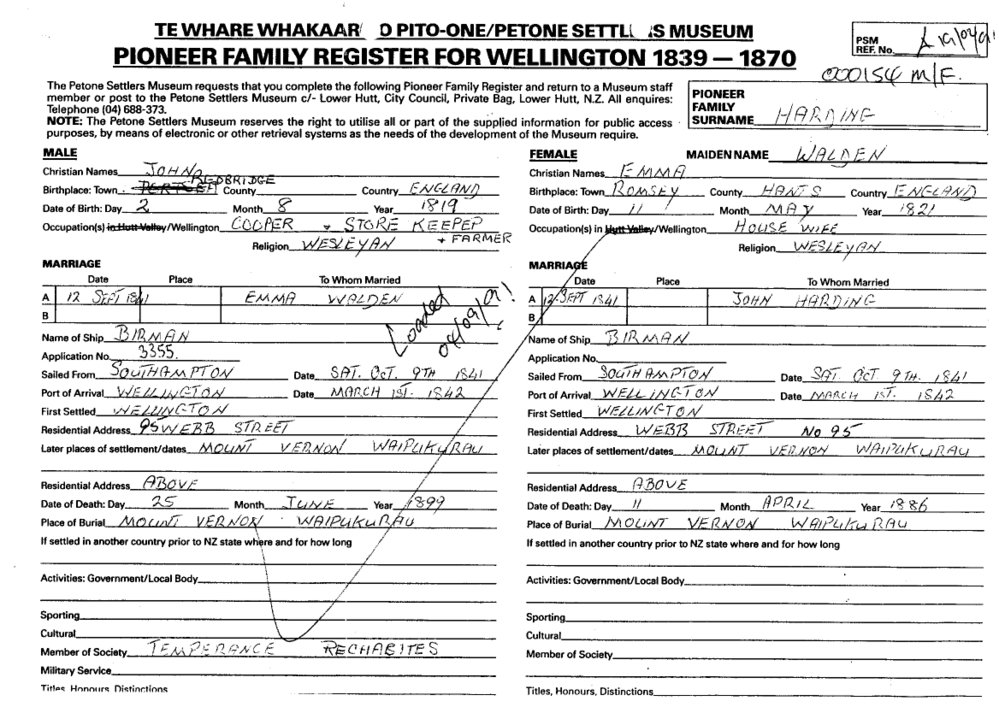 TE WHARE WHAKAAR O PITO-ONE/PETONE SETTL S MUSEUM
PIONEER FAMILY REGISTER FOR WELLINGTON 1839 — 1870
PSM
REF. No.
000154 M/F.
The Petone Settlers Museum requests that you complete the following Pioneer Family Register and return to a Museum staff
member or post to the Petone Settlers Museum c/- Lower Hutt, City Council, Private Bag, Lower Hutt, N.Z. All enquires:
Telephone (04) 688-373.
NOTE: The Petone Settlers Museum reserves the right to utilise all or part of the supplied information for public access
purposes, by means of electronic or other retrieval systems as the needs of the development of the Museum require.
PIONEER
FAMILY
SURNAME HARDING
MALE
Christian Names JOHN
Birthplace: Town REDBRIDGE County Country ENGLAND
Date of Birth: Day 2 Month 8 Year 1819
Occupation(s) in Hutt Valley/Wellington COOPER + STORE KEEPER
+ FARMER
Religion WESLEYAN
MARRIAGE
Date Place To Whom Married
A 12 SEPT 1841 EMMA WALDEN
B
Loaded 04/09/01
Name of Ship BIRMAN
Application No. 3355.
Sailed From SOUTHAMPTON Date SAT. OCT. 9TH 1841
Port of Arrival WELLINGTON Date MARCH 1ST. 1842
First Settled WELLINGTON
Residential Address 95 WEBB STREET
Later places of settlement/dates MOUNT VERNON WAIPUKURAU
Residential Address ABOVE
Date of Death: Day 25 Month JUNE Year 1899
Place of Burial MOUNT VERNON WAIPUKURAU
If settled in another country prior to NZ state where and for how long
Activities: Government/Local Body
Sporting
Cultural
Member of Society TEMPERANCE RECHABITES
Military Service
Titles, Honours, Distinctions
FEMALE MAIDEN NAME WALDEN
Christian Names EMMA
Birthplace: Town ROMSEY County HANTS Country ENGLAND
Date of Birth: Day 11 Month MAY Year 1821
Occupation(s) in Hutt Valley/Wellington HOUSE WIFE
Religion WESLEYAN
MARRIAGE
Date Place To Whom Married
A 12 SEPT 1841 JOHN HARDING
B
Name of Ship BIRMAN
Application No.
Sailed From SOUTHAMPTON Date SAT OCT 9TH. 1841
Port of Arrival WELLINGTON Date MARCH 1ST. 1842
First Settled WELLINGTON
Residential Address WEBB STREET No 95
Later places of settlement/dates MOUNT VERNON WAIPUKURAU
Residential Address ABOVE
Date of Death: Day 11 Month APRIL Year 1886
Place of Burial MOUNT VERNON WAIPUKURAU
If settled in another country prior to NZ state where and for how long
Activities: Government/Local Body
Sporting
Cultural
Member of Society
Titles, Honours, Distinctions